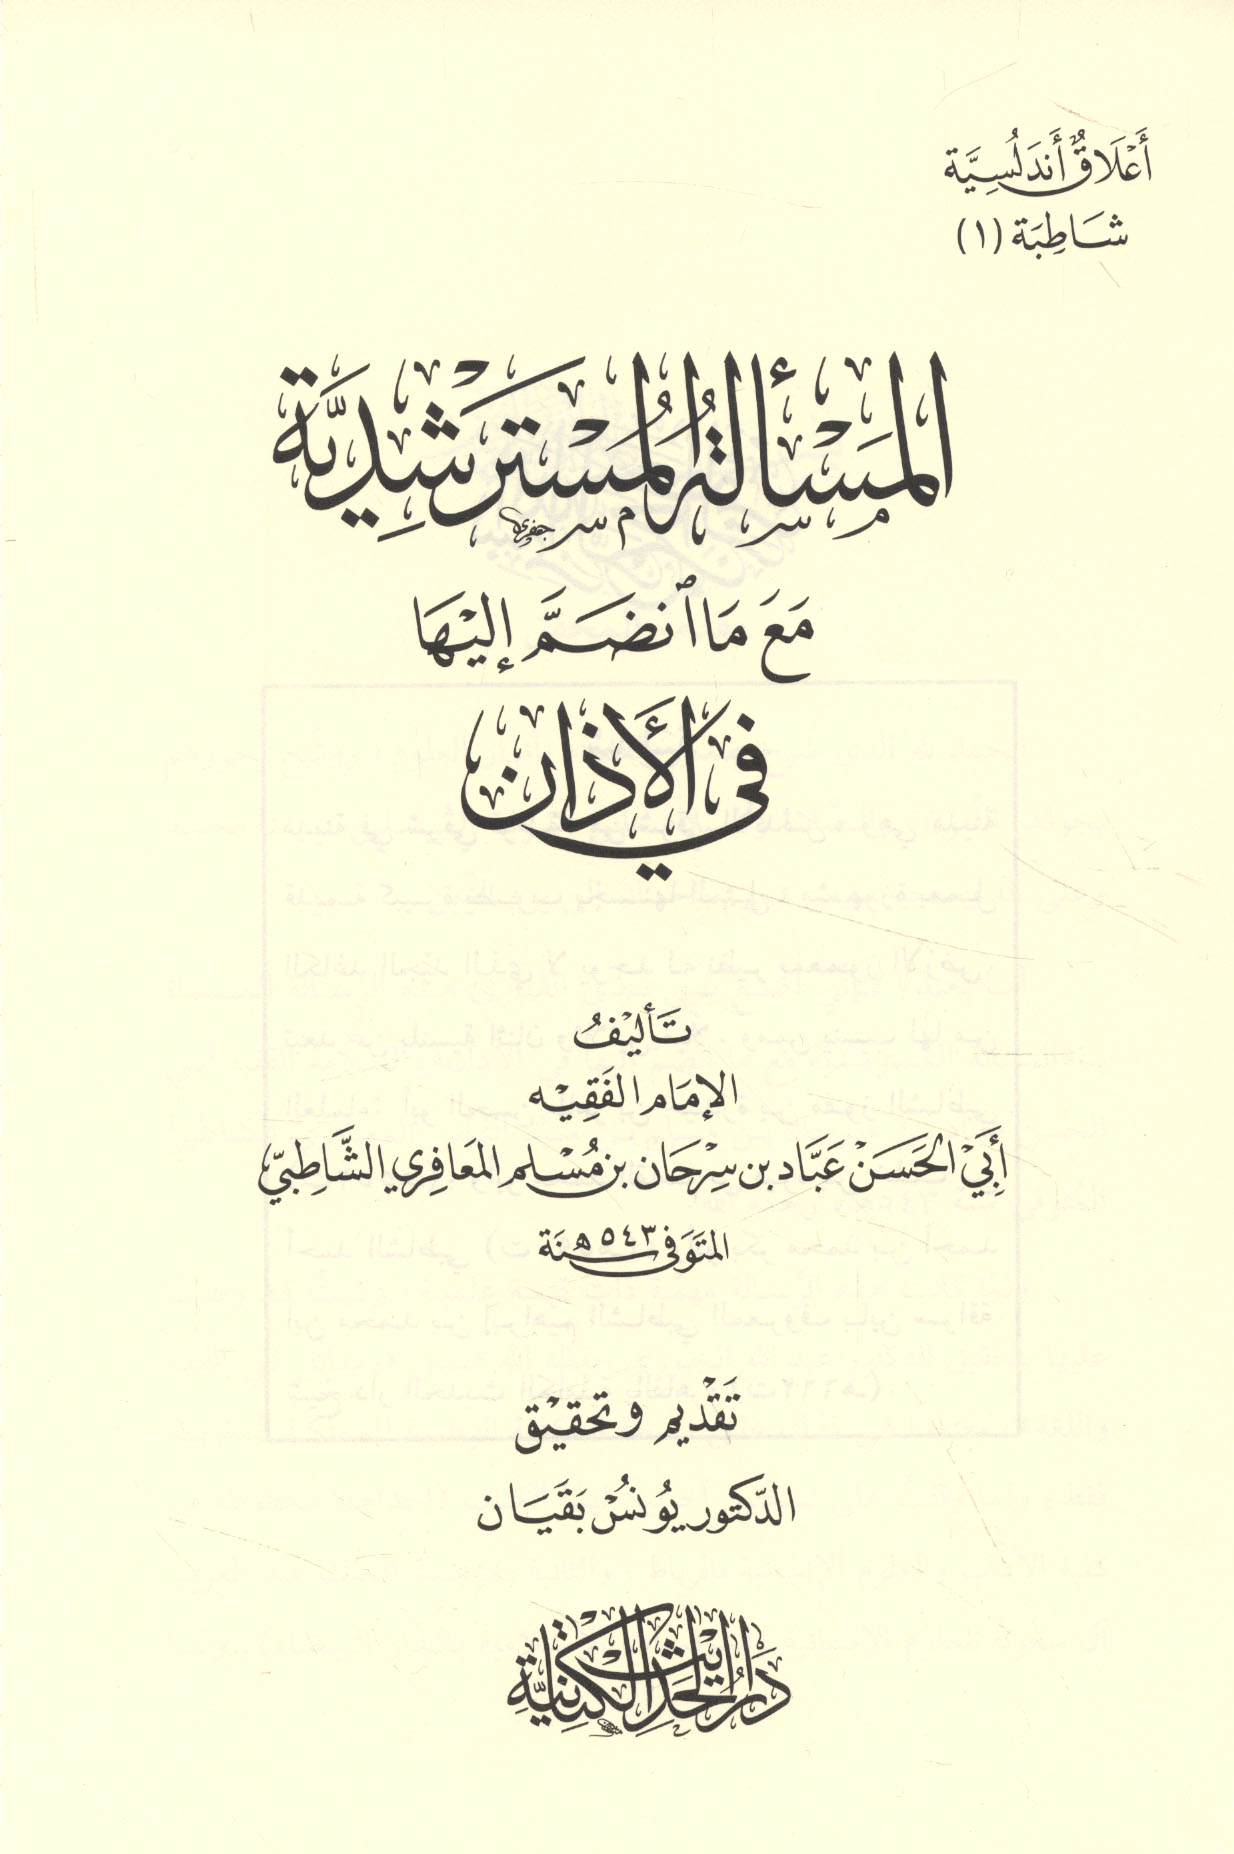 أَعْلَاقٌ أَندَلُسِيَّة
شَاطِبَة (١)
المَسْأَلَةُ المُسْتَرْشِدِيَّة
مَعَ مَا ٱنضَمَّ إِلَيْهَا
فِي الأَذَان
تَأليْفُ
الإِمَام الفَقِيْه
أَبِي الحَسَنْ عَبَّاد بن سِرْحَان بن مُسْلِم المَعَافِرِي الشَّاطِبيّ
المتَوَفى سَنَة ٥٤٣ هـ
تَقْدِيم وتحقيْق
الدّكتور يُونسْ بَقَيَان
دَارُ الحَدِيثِ الكَتَّانِيَّةِ